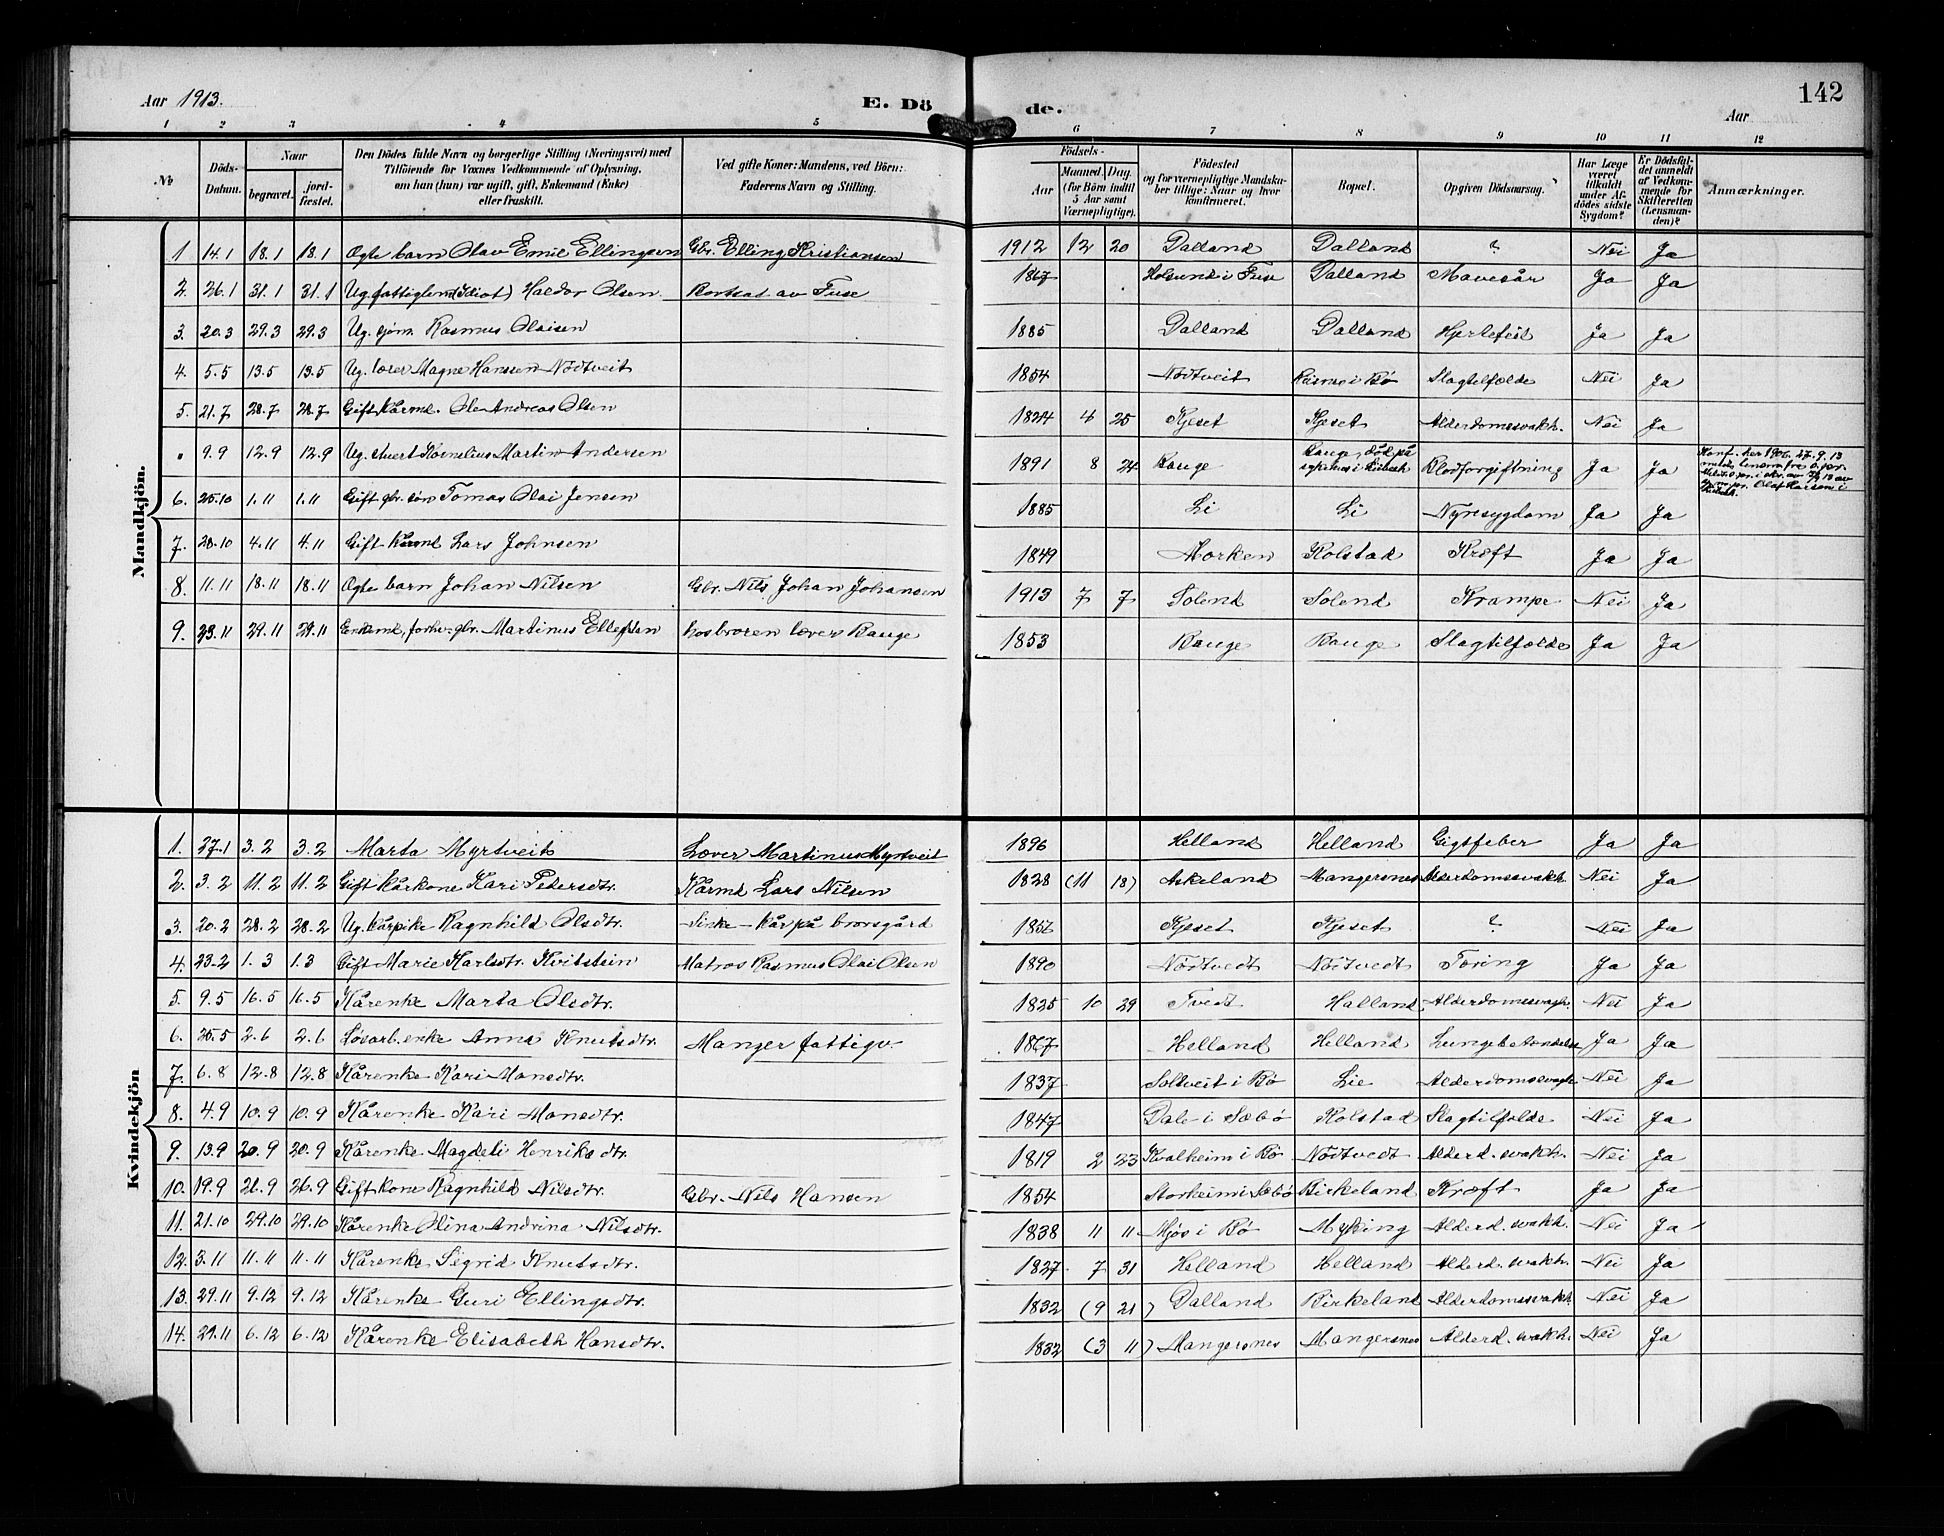 Aar 1913. E. Dö de. Aar 142
1 2 3 4 5 6 7 8 9 10 11 12
№ Döds-Datum. Naar begravet. jord-fæstet. Den Dödes fulde Navn og borgerlige Stilling (Næringsvei) med Tilföiende for Voxnes Vedkommende af Oplysning, om han (hun) var ugift, gift, Enkemand (Enke) eller fraskilt. Ved gifte Koner: Mandens, ved Börn: Faderens Navn og Stilling. Födsels- Aar Maaned. Dag. (for Börn indtil 5 Aar samt Værnepligtige). Födested og for værnepligtige Mandskaber tillige: Naar og hvor konfirmeret. Bopæl. Opgiven Dödsaarsag. Har Læge været tilkaldt under Afdödes sidste Sygdom? Er Dödsfaldet anmeldt af Vedkommende for Skifteretten (Lensmanden)? Anmærkninger.
Mandkjön.
1 14.1 18.1 18.1 Ægte barn Olav Emil Ellingsen Gbr. Elling Kristiansen 1912 12 20 Dalland Dalland ? Nei Ja
2. 26.1 31.1 31.1 Ug. fattiglem (Idiot) Haldor Olsen Bortsat av Fuse 1867 Holsund i Fuse Dalland Mavesår Ja Ja
3. 20.3 29.3 29.3 Ug. sjøm. Rasmus Olaisen 1885 Dalland Dalland Hjertefeil Ja Ja
4. 5.5 13.5 13.5 Ug. lærer Magne Hanssen Nødtveit 1854 Nödtveit i Bø Slagtilfælde Nei Ja
5. 21.7 28.7 28.7 Gift kårmd. Ole Andreas Olsen 1824 4 25 Kjeset Kjeset Alderdomssvakh. Nei Ja
9.9 12.9 12.9 Ug. Kornelius Martin Andersen 1891 8 24 Bauge Bauge, död på sykehus i Blodforgiftning Ja Ja Konf. her 1906. 27.9.13
6. 25.10 1.11 1.11 Gift gbr. Tomas Olai Jensen 1885 Li Li Nyresygdom Ja Ja
7. 28.10 4.11 4.11 Gift kårmd Lars Johnsen 1849 Morken Kolstad Kræft Ja Ja
8. 11.11 18.11 18.11 Ægte barn Johan Nilsen Gbr. Nils Johan Johansen 1913 7 7 Solend Solend Krampe Nei Ja
9. 23.11 29.11 29.11 Enkemd, forher gbr. Martinus Ellefsen hos broren Bauge 1853 Bauge Bauge Slagtilfælde Ja Ja
Kvindekjön
1. 27.1 3.2 3.2 Marta Myrtveit Læver Martinus Myrtveit 1896 Helland Helland Gigtfeber Ja Ja
2. 3.2 11.2 11.2 Gift kårkone Kari Pedersdtr. Kårmd Lars Nilsen 1828 (11 18) Askeland Mangersnes Alderdomssvakh. Nei Ja
3. 20.2 28.2 28.2 Ug. kårpike Ragnhild Olsdtr. kår på brorsgård 1856 Kjeset Kjeset ? Nei Ja
4. 23.2 1.3 1.3 Gift Marie Karlsdtr. Kvitstein Matros Rasmus Olai Olsen 1890 Nödtvedt Nödtvedt Tæring Ja Ja
5. 9.5 16.5 16.5 Kårenke Marta Olsdtr. 1825 10 29 Tvedt Halland Alderdomssvagh. Nei Ja
6. 25.5 2.6 2.6 Løsarb.enke Anna Knutsdtr. Manger fattigv. 1867 Helland Helland Lungebetændelse Ja Ja
7. 6.8 12.8 12.8 Kårenke Kari Monsdtr. 1837 Soltveit i Bø Lie Alderdomssvagh Nei Ja
8. 4.9 10.9 10.9 Kårenke Kari Monsdtr. 1847 Dale i Sæbø Kolstad Slagtilfælde Nei Ja
9. 13.9 20.9 20.9 Kårenke Magdeli Henriksdtr. 1819 2 23 Kvalheim i Bø Nödtvedt Alderd. svakh. Nei Ja
10. 19.9 26.9 26.9 Gift kone Ragnhild Nilsdtr. Gbr. Nils Hansen 1854 Storheim i Sæbø Birkeland Kræft Ja Ja
11. 21.10 29.10 29.10 Kårenke Olina Andrina Nilsdtr. 1838 11 11 Mjøs i Bø Myking Alderd. svakh. Nei Ja
12. 3.11 11.11 11.11 Kårenke Sigrid Knutsdtr. 1827 7 31 Helland Helland Alderd. svakh. Nei Ja
13. 29.11 9.12 9.12 Kårenke Guri Ellingsdtr. 1832 (9 21) Dalland Birkeland Alderdomssvakh. Nei Ja
14. 29.11 6.12 6.12 Kårenke Elisabeth Hansdtr. 1832 (3 11) Mangersnes Mangersnes Alderd. svakh. Nei Ja